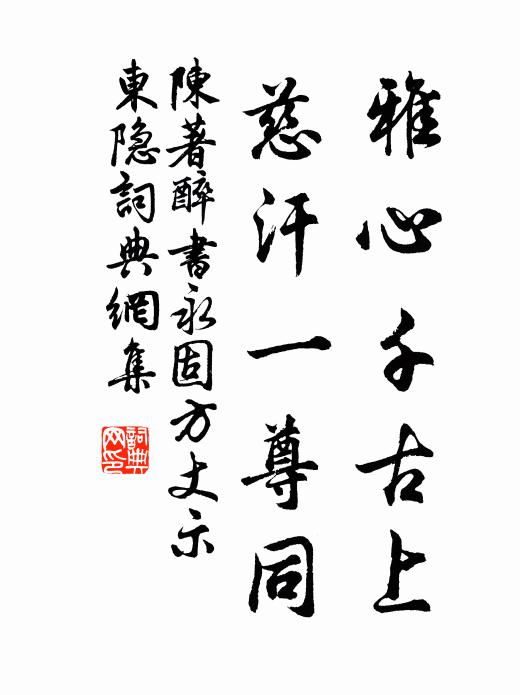 雅心千古上
慈汗一尊同
陳著醉書永固方丈示
東隐詞典網集
詞典
网印